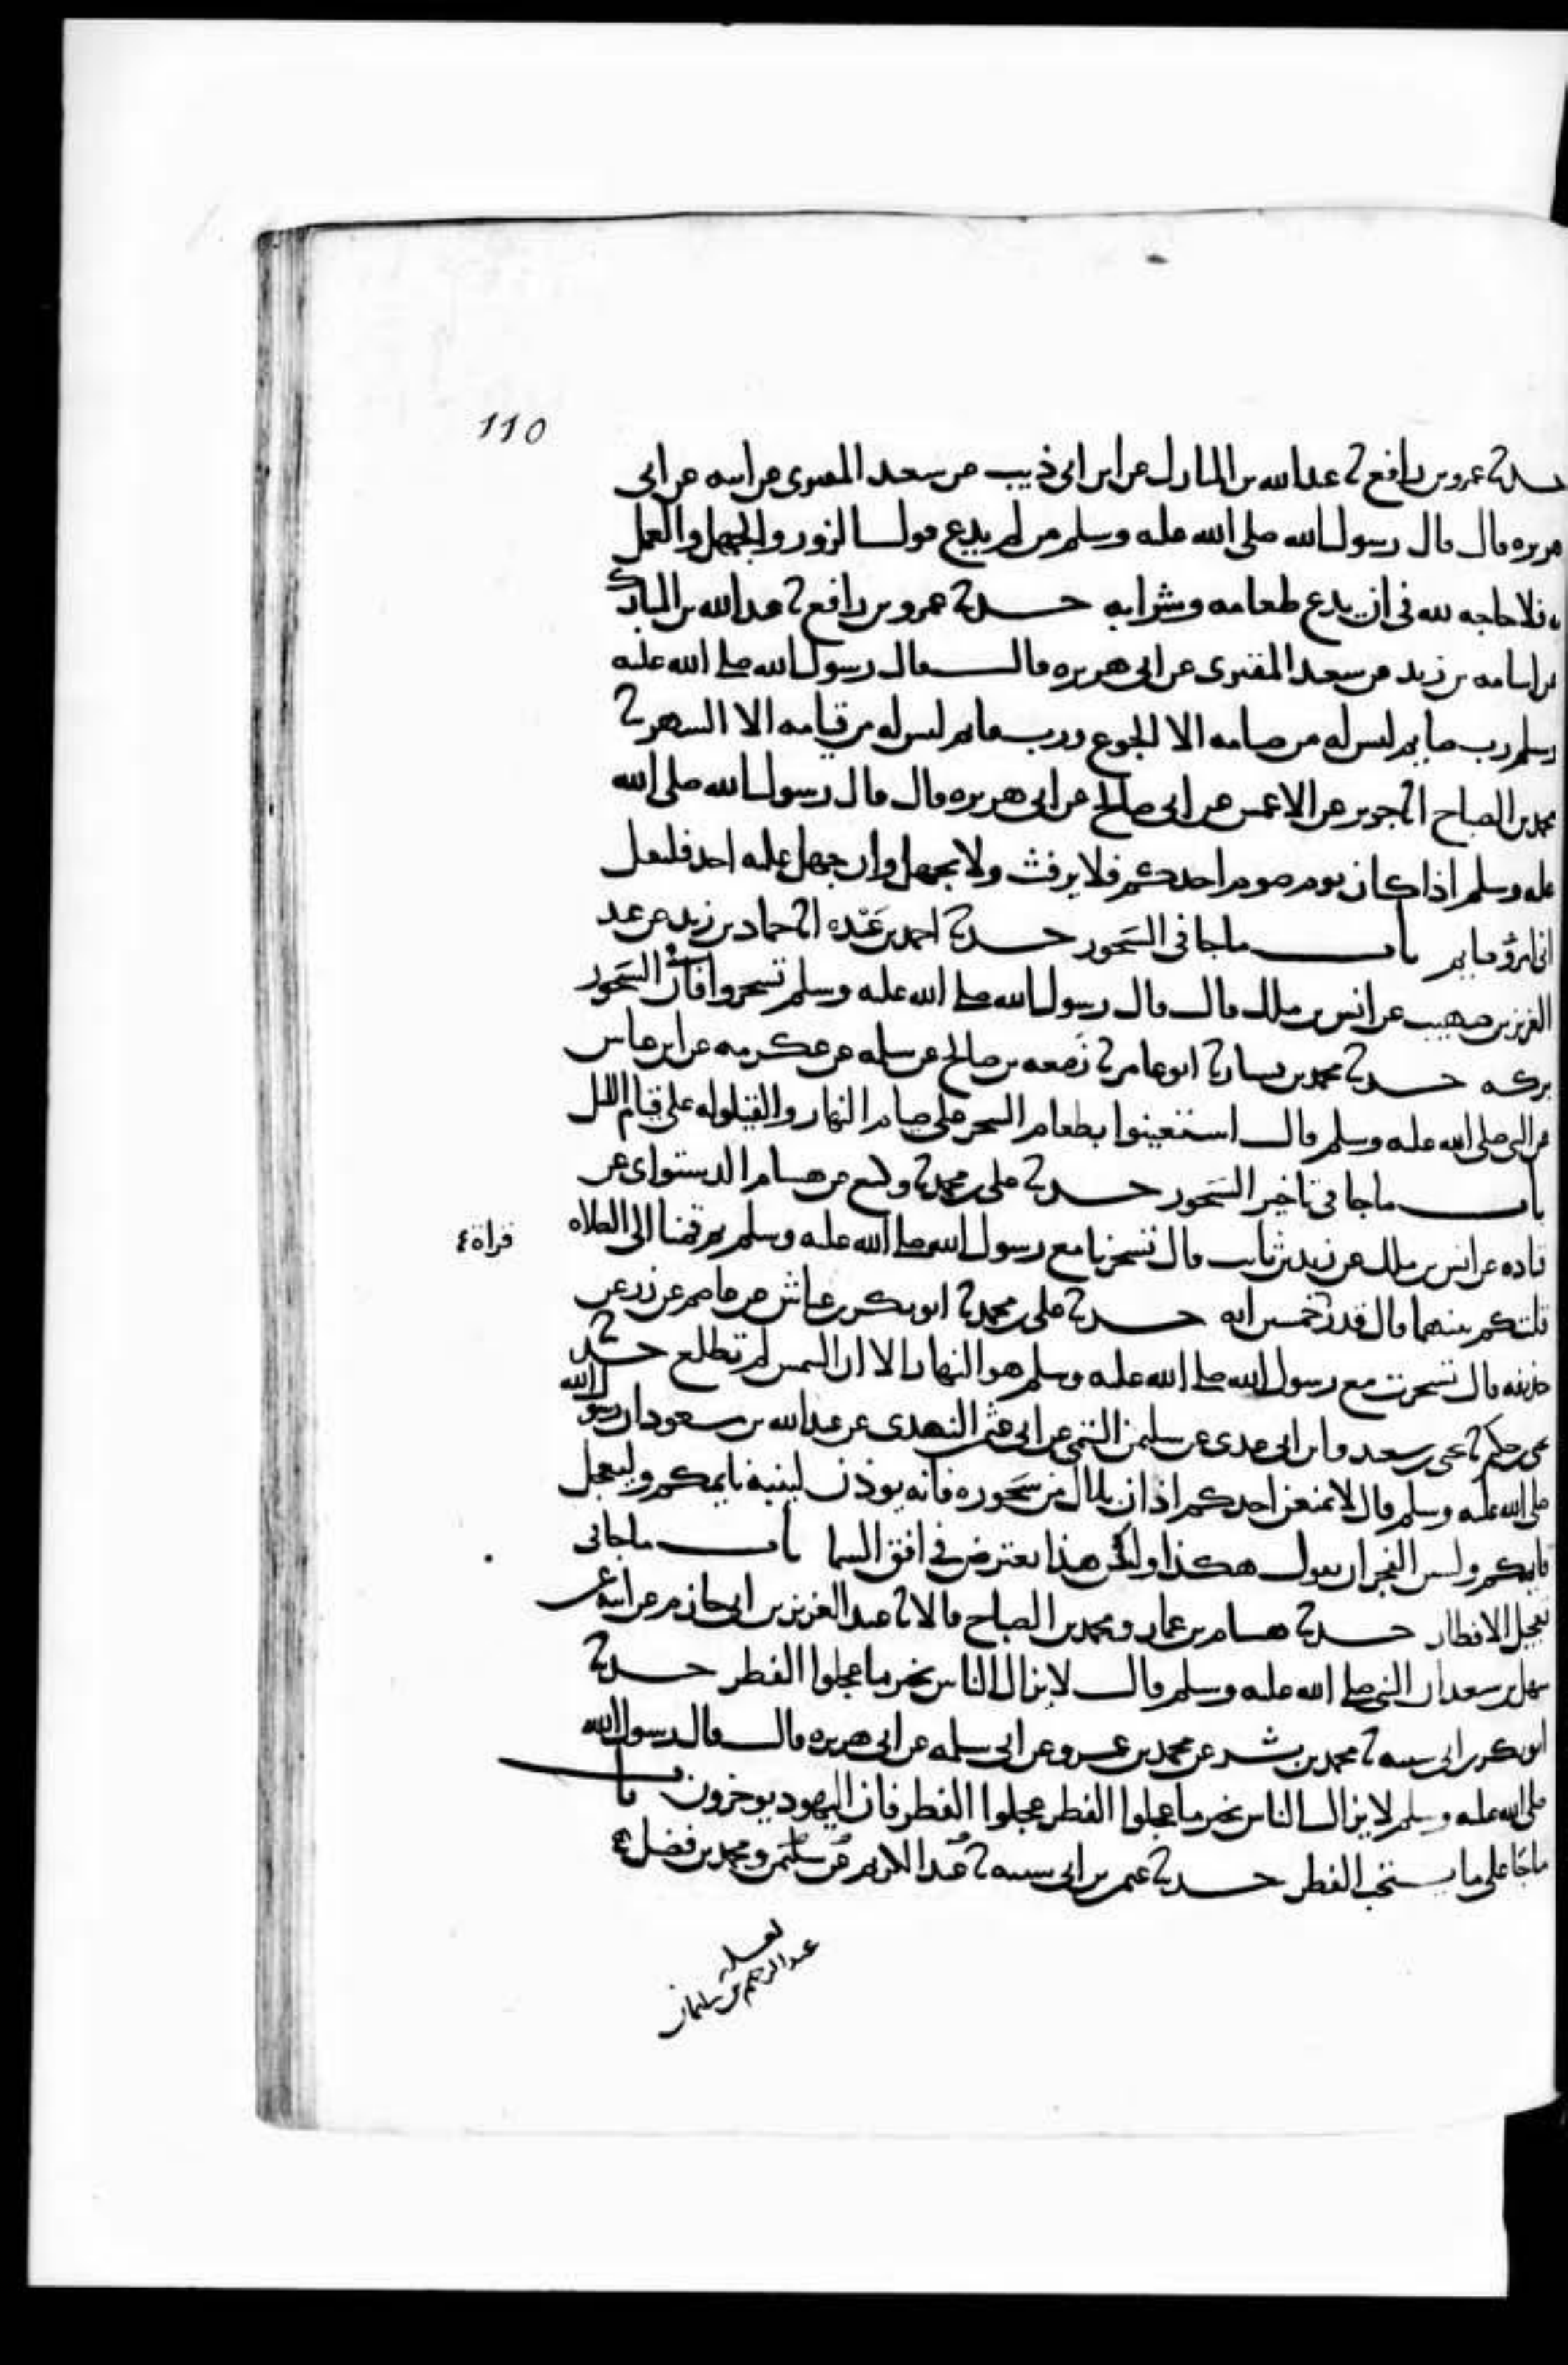 110
حدثنا عمرو بن رافع ثنا عبد الله بن المبارك عن ابن ابي ذيب عن سعيد المقبري عن ابيه عن ابي
هريره قال قال رسول الله صلى الله عليه وسلم من لم يدع قول الزور والجهل والعمل
به فلا حاجه لله في ان يدع طعامه وشرابه حدثنا عمرو بن رافع ثنا عبد الله بن المبارك
عن اسامه بن زيد عن سعيد المقبري عن ابي هريره قال قال رسول الله صلى الله عليه
وسلم رب صايم ليس له من صيامه الا الجوع ورب قايم ليس له من قيامه الا السهر ثنا
محمد بن الصباح انا جرير عن الاعمش عن ابي صالح عن ابي هريره قال قال رسول الله صلى الله
عليه وسلم اذا كان يوم صوم احدكم فلا يرفث ولا يجهل وان جهل عليه احد فليقل
اني امرؤ صايم باب ما جا في السحور حدثنا احمد بن عبده انا حماد بن زيد عن عبد
العزيز بن صهيب عن انس بن ملك قال قال رسول الله صلى الله عليه وسلم تسحروا فان في السحور
بركه حدثنا محمد بن بشار ثنا ابو عامر ثنا زمعه بن صالح عن سلمه عن عكرمه عن ابن عباس
عن النبي صلى الله عليه وسلم قال استعينوا بطعام السحر على صيام النهار والقيلوله على قيام الليل
باب ما جا في تاخير السحور حدثنا علي بن محمد ثنا وكيع عن هشام الدستواي عن
قتاده عن انس بن ملك عن زيد بن ثابت قال تسحرنا مع رسول الله صلى الله عليه وسلم ثم قمنا الى الصلاه
قراة
قلت كم بينهما قال قدر خمسين ايه حدثنا علي بن محمد ثنا ابو بكر بن عياش عن عاصم عن زر عن
حذيفه قال تسحرت مع رسول الله صلى الله عليه وسلم هو النهار الا ان الشمس لم تطلع حدثنا
يحيى بن حكيم ثنا يحيى بن سعيد وابن ابي عدي عن سليمن التيمي عن ابي عثمن النهدي عن عبد الله بن مسعود ان رسول الله
صلى الله عليه وسلم قال لا يمنعن احدكم اذان بلال من سحوره فانه يوذن لينبه نايمكم وليعجل
قايمكم وليس الفجر ان يقول هكذا ولكن هذا يعترض في افق السما باب ما جا في
تعجيل الافطار حدثنا هشام بن عمار ومحمد بن الصباح قالا ثنا عبد العزيز بن ابي حازم عن ابيه عن
سهل بن سعد ان النبي صلى الله عليه وسلم قال لا يزال الناس بخير ما عجلوا الفطر حدثنا
ابو بكر بن ابي شيبه ثنا محمد بن بشر عن محمد بن عمرو عن ابي سلمه عن ابي هريره قال قال رسول الله
صلى الله عليه وسلم لا يزال الناس بخير ما عجلوا الفطر عجلوا الفطر فان اليهود يوخرون باب
ما جا على ما يستحب الفطر حدثنا عثمن بن ابي شيبه ثنا عبد الكريم بن سليمن ومحمد بن فضيل ح
لعله
عبد الرحيم بن سليمان